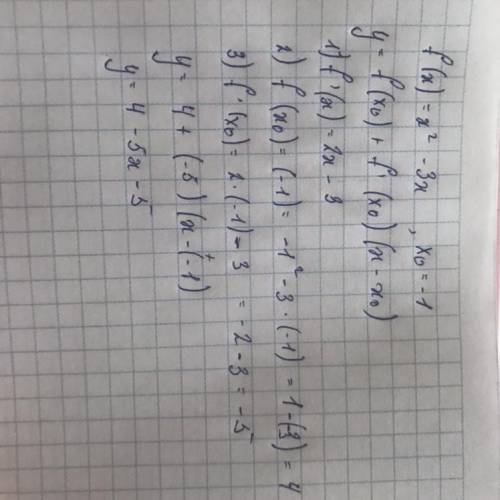 f(x) = x² - 3x , x₀ = -1
y = f(x₀) + f'(x₀) (x - x₀)
1) f'(x) = 2x - 3
2) f(x₀) = (-1) = -1² - 3 · (-1) = 1 - (3) = 4
3) f'(x₀) = 2 · (-1) - 3 = -2 - 3 = -5
y = 4 + (-5) (x - (-1)
y = 4 - 5x - 5